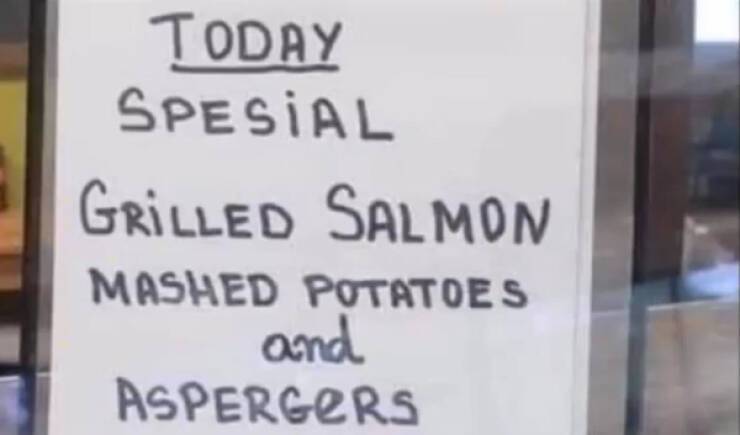 TODAY
SPESiAL
GRiLLED SALMON
MASHED POTATOES
and
ASPERGeRS